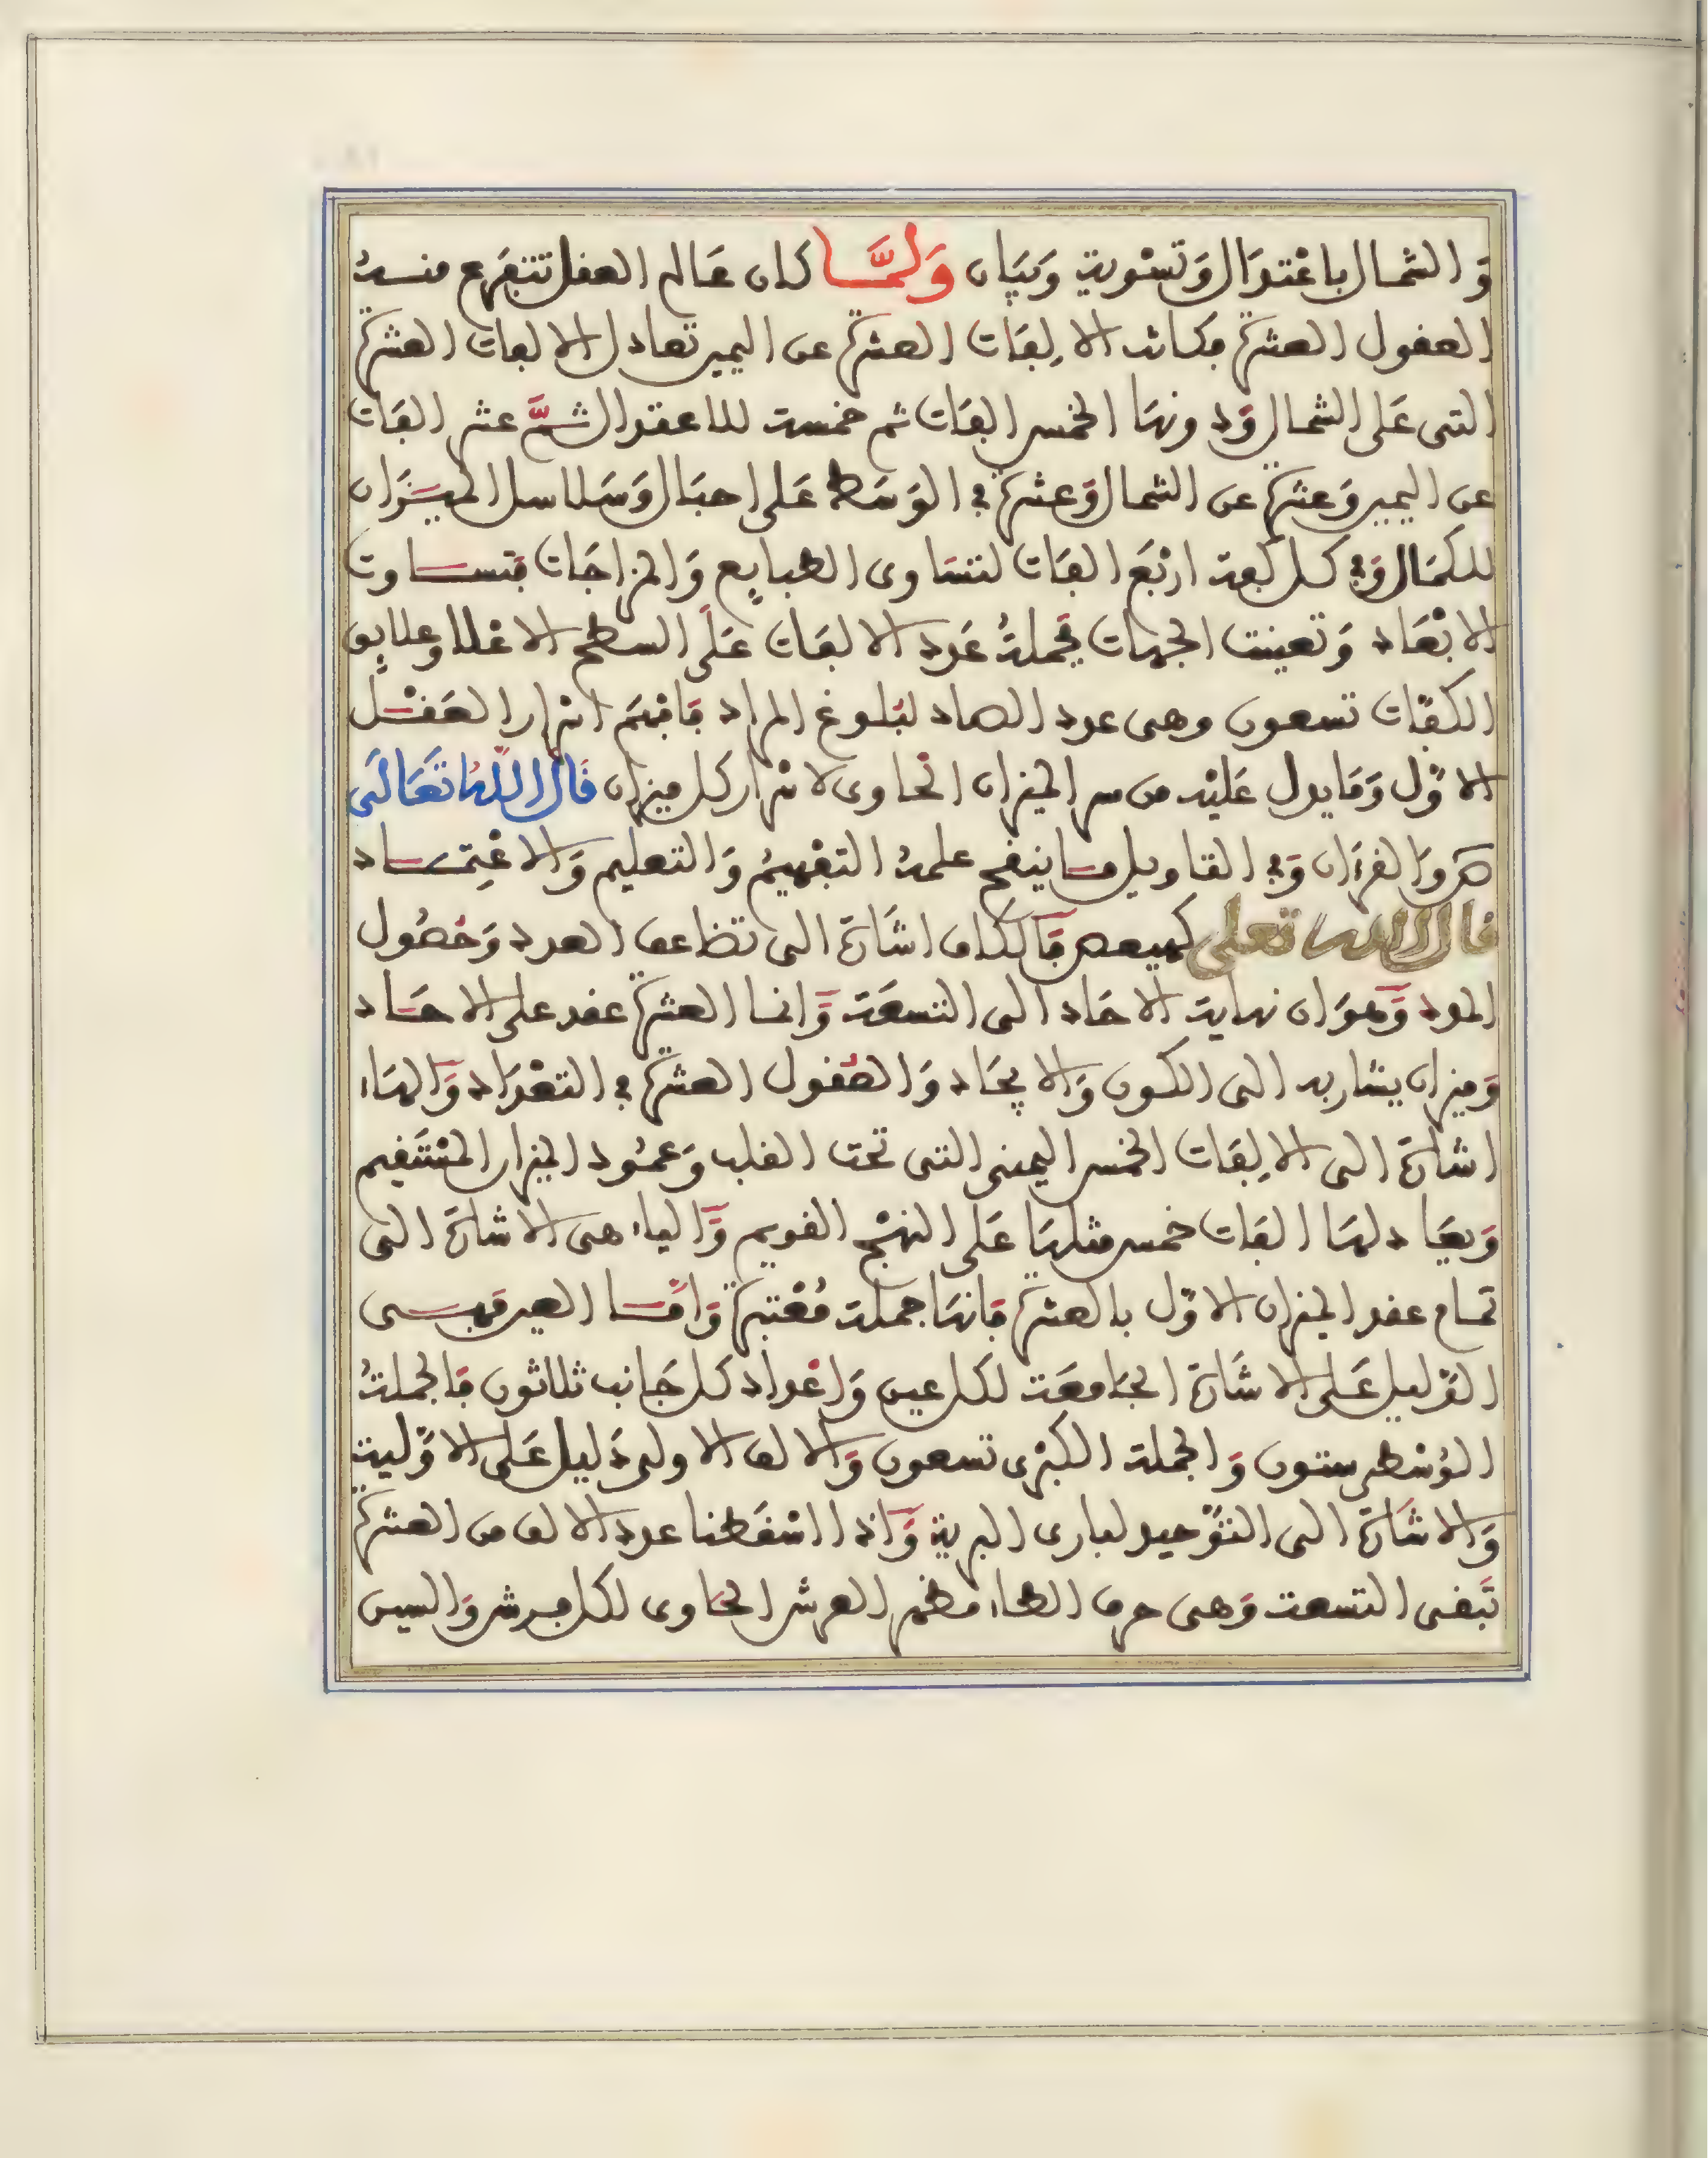 وَالشمال باعْتدَال وَتسْوية وَبيَان وَلمَّا كان عَالم العقل تتفرع منه
العقول العشرة فكانت الالِفَات العشرة عن اليمين تعادل الالفات العشرة
التى عَلى الشمال وَدونهَا الخمس الفَات ثم خمسة للاعتدال ثمَّ عشر الفَات
عن اليمين وَعشرة عن الشمال وَعشرة فى الوَسَط عَلى احبَال وَسَلاسل الميزَان
للكمَال وَفى كل كفة ارْبَع الفَات لتسَاوى الطبايع وَالمزاجَات فتساوت
الابْعَاد وَتعينت الجهات فجملةُ عَدد الالفَات عَلَى السطح الاعْلا وعلايق
الكفّات تسعون وهى عدد الصاد لبُلوغ المراد فَافهَم اسرار العَقْل
الاوّل وَمَا يدل عَليْه من سر الميزان الحاوى لاسْرار كل ميزان قَالَ اللَّهُ تَعَالَى
صَ وَالقرءَان وَفى التاويل ما ينفع علمهُ التفهيمُ وَالتعليم وَالاعْتِمَاد
قال الله تعلى كهيعص فَالكاف اشَارَة الى تضاعف العدد وَحُصُول
المدد وَهوَ ان نهاية الاحَاد الى التسعَة وَانما العشرة عقد على الاحَاد
وَميزان يشار به الى الكون وَالايجَاد وَالعُقول العشرة فى التعْدَاد وَالهَاء
اشارَة الى الالِفَات الخمس اليمنى التى تحت القلب وَعمُود الميزان المسْتَقيم
وَيعَادلهَا الفَات خمس مثلهَا عَلى النهْج القويم وَالياء هى الاشارَة الى
تمام عقد الميزان الاوّل بالعشرة فَانهَا جملة مُعْتبرة وَامَّا العين فهى
الدّليل عَلى الاشَارَة الجَامعَة لكل عين وَاعْدَاد كل جَانب ثلاثون فَالجملةُ
الوُسْطى ستون وَالجملة الكبْرى تسعون وَالالف الاولى دَليل عَلى الاوّلية
وَالاشَارَة الى التوْحيد لبارى البرية وَاذا اسْقَطنا عدد الالف من العشرة
تَبقى التسعة وَهى حرف الطاء مظهر العرش الحَاوى لكل فرش وَالسين